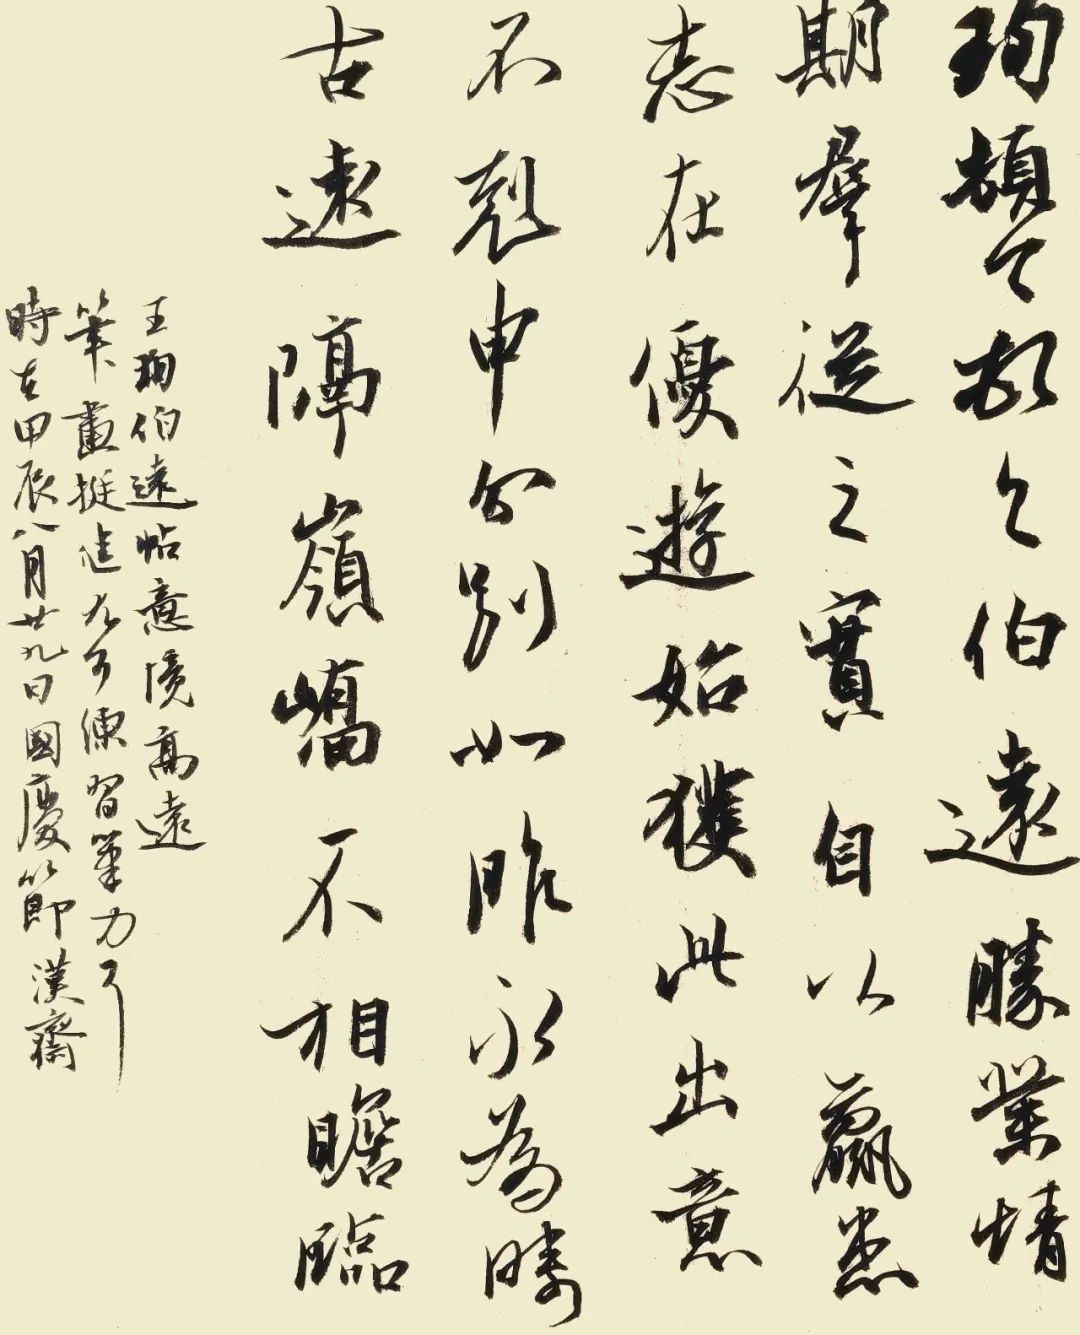 珣頓首頓首伯遠勝業情
期群從之寶自以羸患
志在優遊始獲此出意
不剋申分別如昨永為疇
古遠隔嶺嶠不相瞻臨
王珣伯遠帖意境高遠
筆畫挺進尤可練習筆力
時在甲辰八月廿九日國慶節漢齋